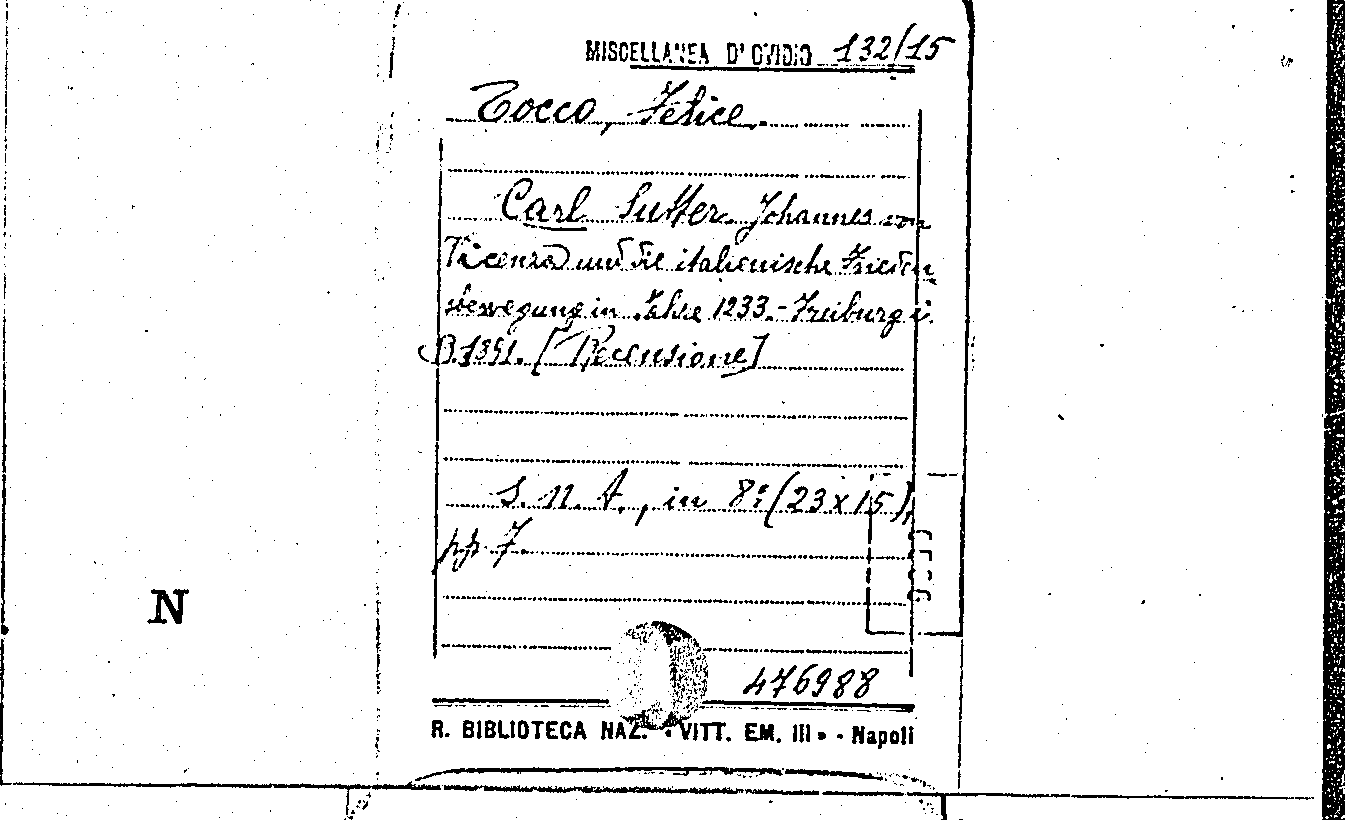 MISCELLANEA D'OVIDIO 132/15
Tocco, Felice.
Carl Sutter. Johannes von
Vicenza und die italienische Frieden
sbewegung in Jahre 1233. - Freiburg i.
B. 1891. [Recensione]
S. n. t., in 8º (23 x 15),
pp. 7.
N
476988
R. BIBLIOTECA NAZ. «VITT. EM. III» - Napoli